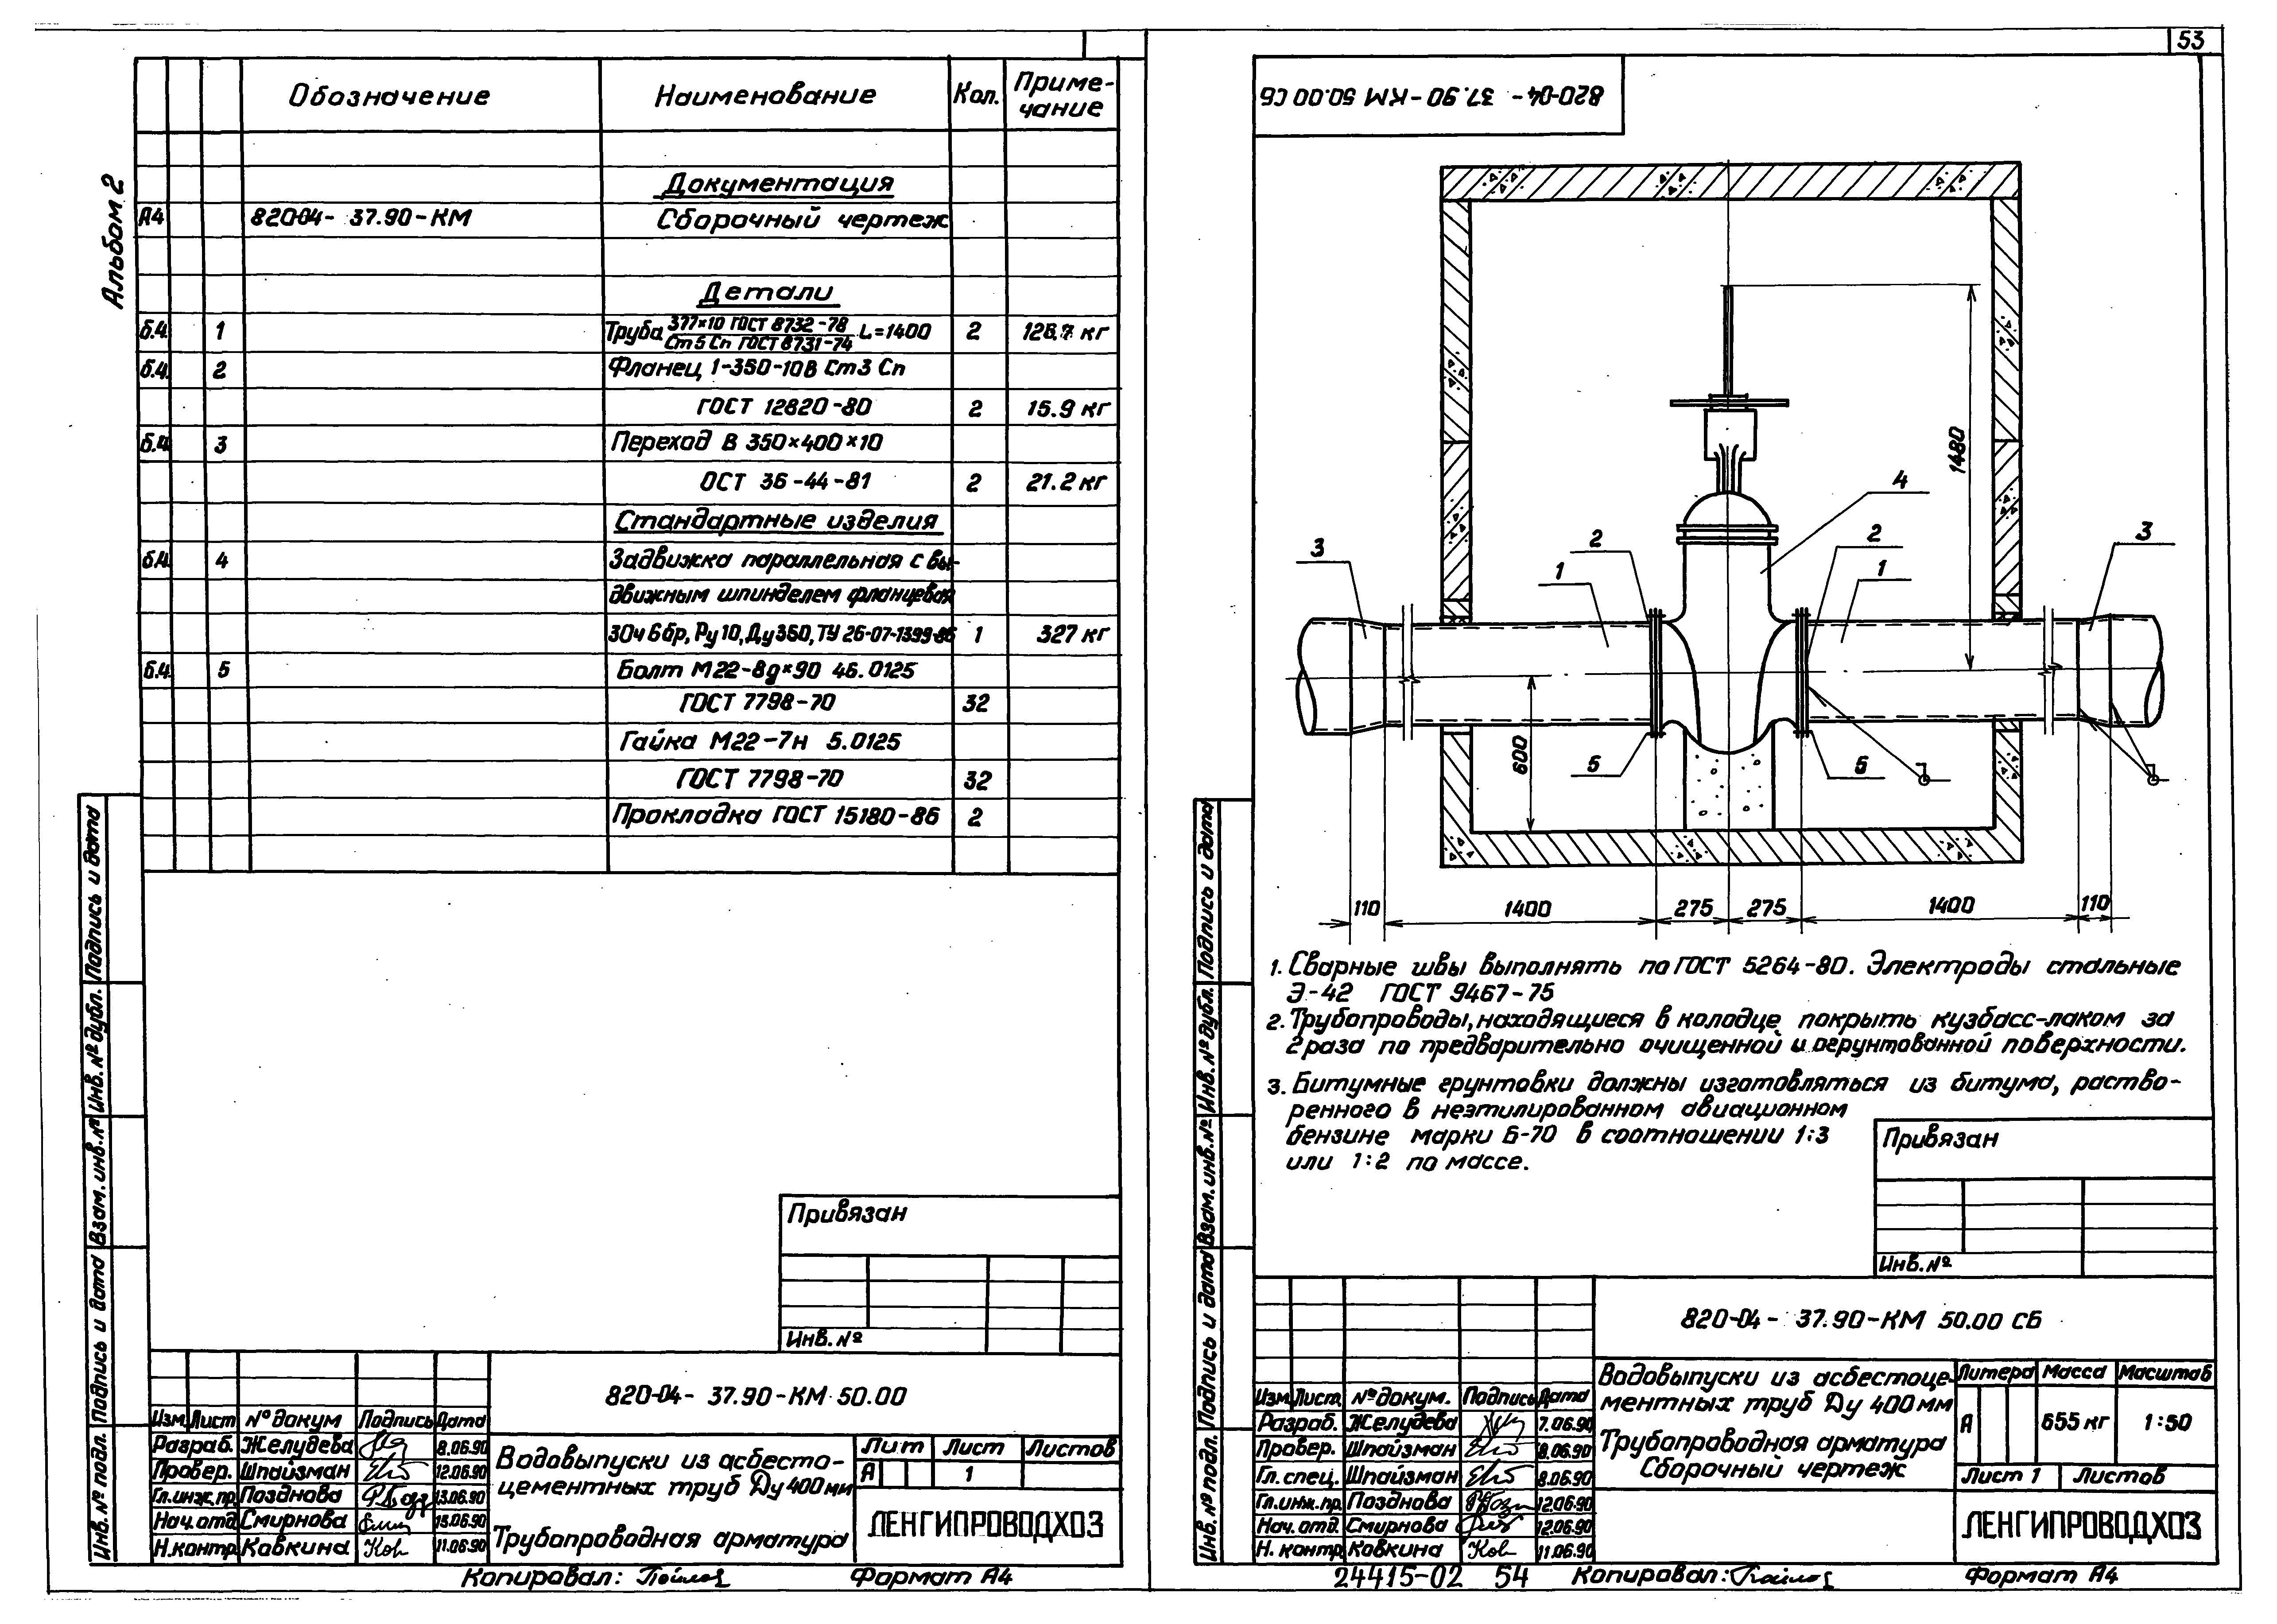 53
Альбом 2
Обозначение Наименование Кол. Приме-
чание
Документация
А4 820-04- 37.90-КМ Сборочный чертеж
Детали
б.ч. 1 Труба 377×10 ГОСТ 8732-78 L=1400 2 126.7 кг
Ст5 Сп ГОСТ 8731-74
б.ч. 2 Фланец 1-350-10В Ст3 Сп
ГОСТ 12820-80 2 15.9 кг
б.ч. 3 Переход В 350×400×10
ОСТ 36-44-81 2 21.2 кг
Стандартные изделия
б.ч. 4 Задвижка параллельная с вы-
движным шпинделем фланцевая
30ч6бр, Ру10, Ду350, ТУ 26-07-1399-86 1 327 кг
б.ч. 5 Болт М22-8g×90 46.0125
ГОСТ 7798-70 32
Гайка М22-7н 5.0125
ГОСТ 7798-70 32
Прокладка ГОСТ 15180-86 2
Подпись и дата
Инв.№ дубл.
Взам.инв.№
Подпись и дата
Инв.№ подл.
Привязан
Инв.№
820-04- 37.90-КМ 50.00
Изм. Лист №докум Подпись Дата
Разраб. Желудева 8.06.90
Провер. Шпайзман 12.06.90
Гл.инж.пр. Позднова 13.06.90
Нач.отд. Смирнова 15.06.90
Н.контр. Кавкина 11.06.90
Водовыпуски из асбесто-
цементных труб Ду 400мм
Трубопроводная арматура
Лит Лист Листов
А 1
ЛЕНГИПРОВОДХОЗ
Копировал: Формат А4
820-04- 37.90-КМ 50.00 СБ
1480
4
3 2 1 2 1 3
600
5 5
110 1400 275 275 1400 110
1. Сварные швы выполнять по ГОСТ 5264-80. Электроды стальные
Э-42 ГОСТ 9467-75
2. Трубопроводы, находящиеся в колодце покрыть кузбасс-лаком за
2 раза по предварительно очищенной и огрунтованной поверхности.
3. Битумные грунтовки должны изготовляться из битума, раство-
ренного в неэтилированном авиационном
бензине марки Б-70 в соотношении 1:3
или 1:2 по массе.
Подпись и дата
Инв.№ дубл.
Взам.инв.№
Подпись и дата
Инв.№ подл.
Привязан
Инв.№
820-04- 37.90-КМ 50.00 СБ
Изм. Лист №докум. Подпись Дата
Разраб. Желудева 7.06.90
Провер. Шпайзман 8.06.90
Гл.спец. Шпайзман 8.06.90
Гл.инж.пр. Позднова 12.06.90
Нач.отд. Смирнова 12.06.90
Н. контр. Кавкина 11.06.90
Водовыпуски из асбестоце-
ментных труб Ду 400мм
Трубопроводная арматура
Сборочный чертеж
Литера Масса Масштаб
А 655 кг 1:50
Лист 1 Листов
ЛЕНГИПРОВОДХОЗ
24415-02 54 Копировал: Формат А4